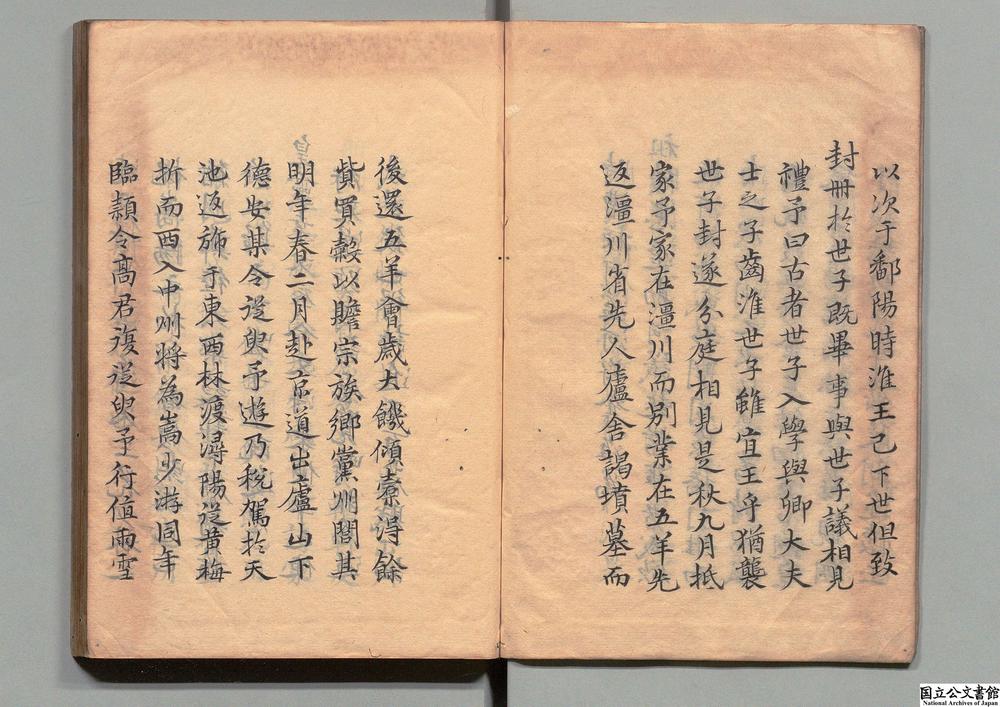 以次于鄱陽時淮王已下世但致
封冊於世子既畢事與世子議相見
禮予曰古者世子入學與卿大夫
士之子齒淮世子雖宜王乎猶襲
世子封遂分庭相見是秋九月抵
家予家在漳川而別業在五羊先
返漳川省先人廬舍謁墳墓而
後還五羊會歲大饑傾橐得餘
貲買穀以贍宗族鄉黨州閭其
明年春二月赴京道出廬山下
德安某令從臾予遊乃稅駕於天
池返斾于東西林渡潯陽從黄梅
折而西入中州将為嵩少游同年
臨潁令高君復從臾予行値雨雪
国立公文書館
National Archives of Japan